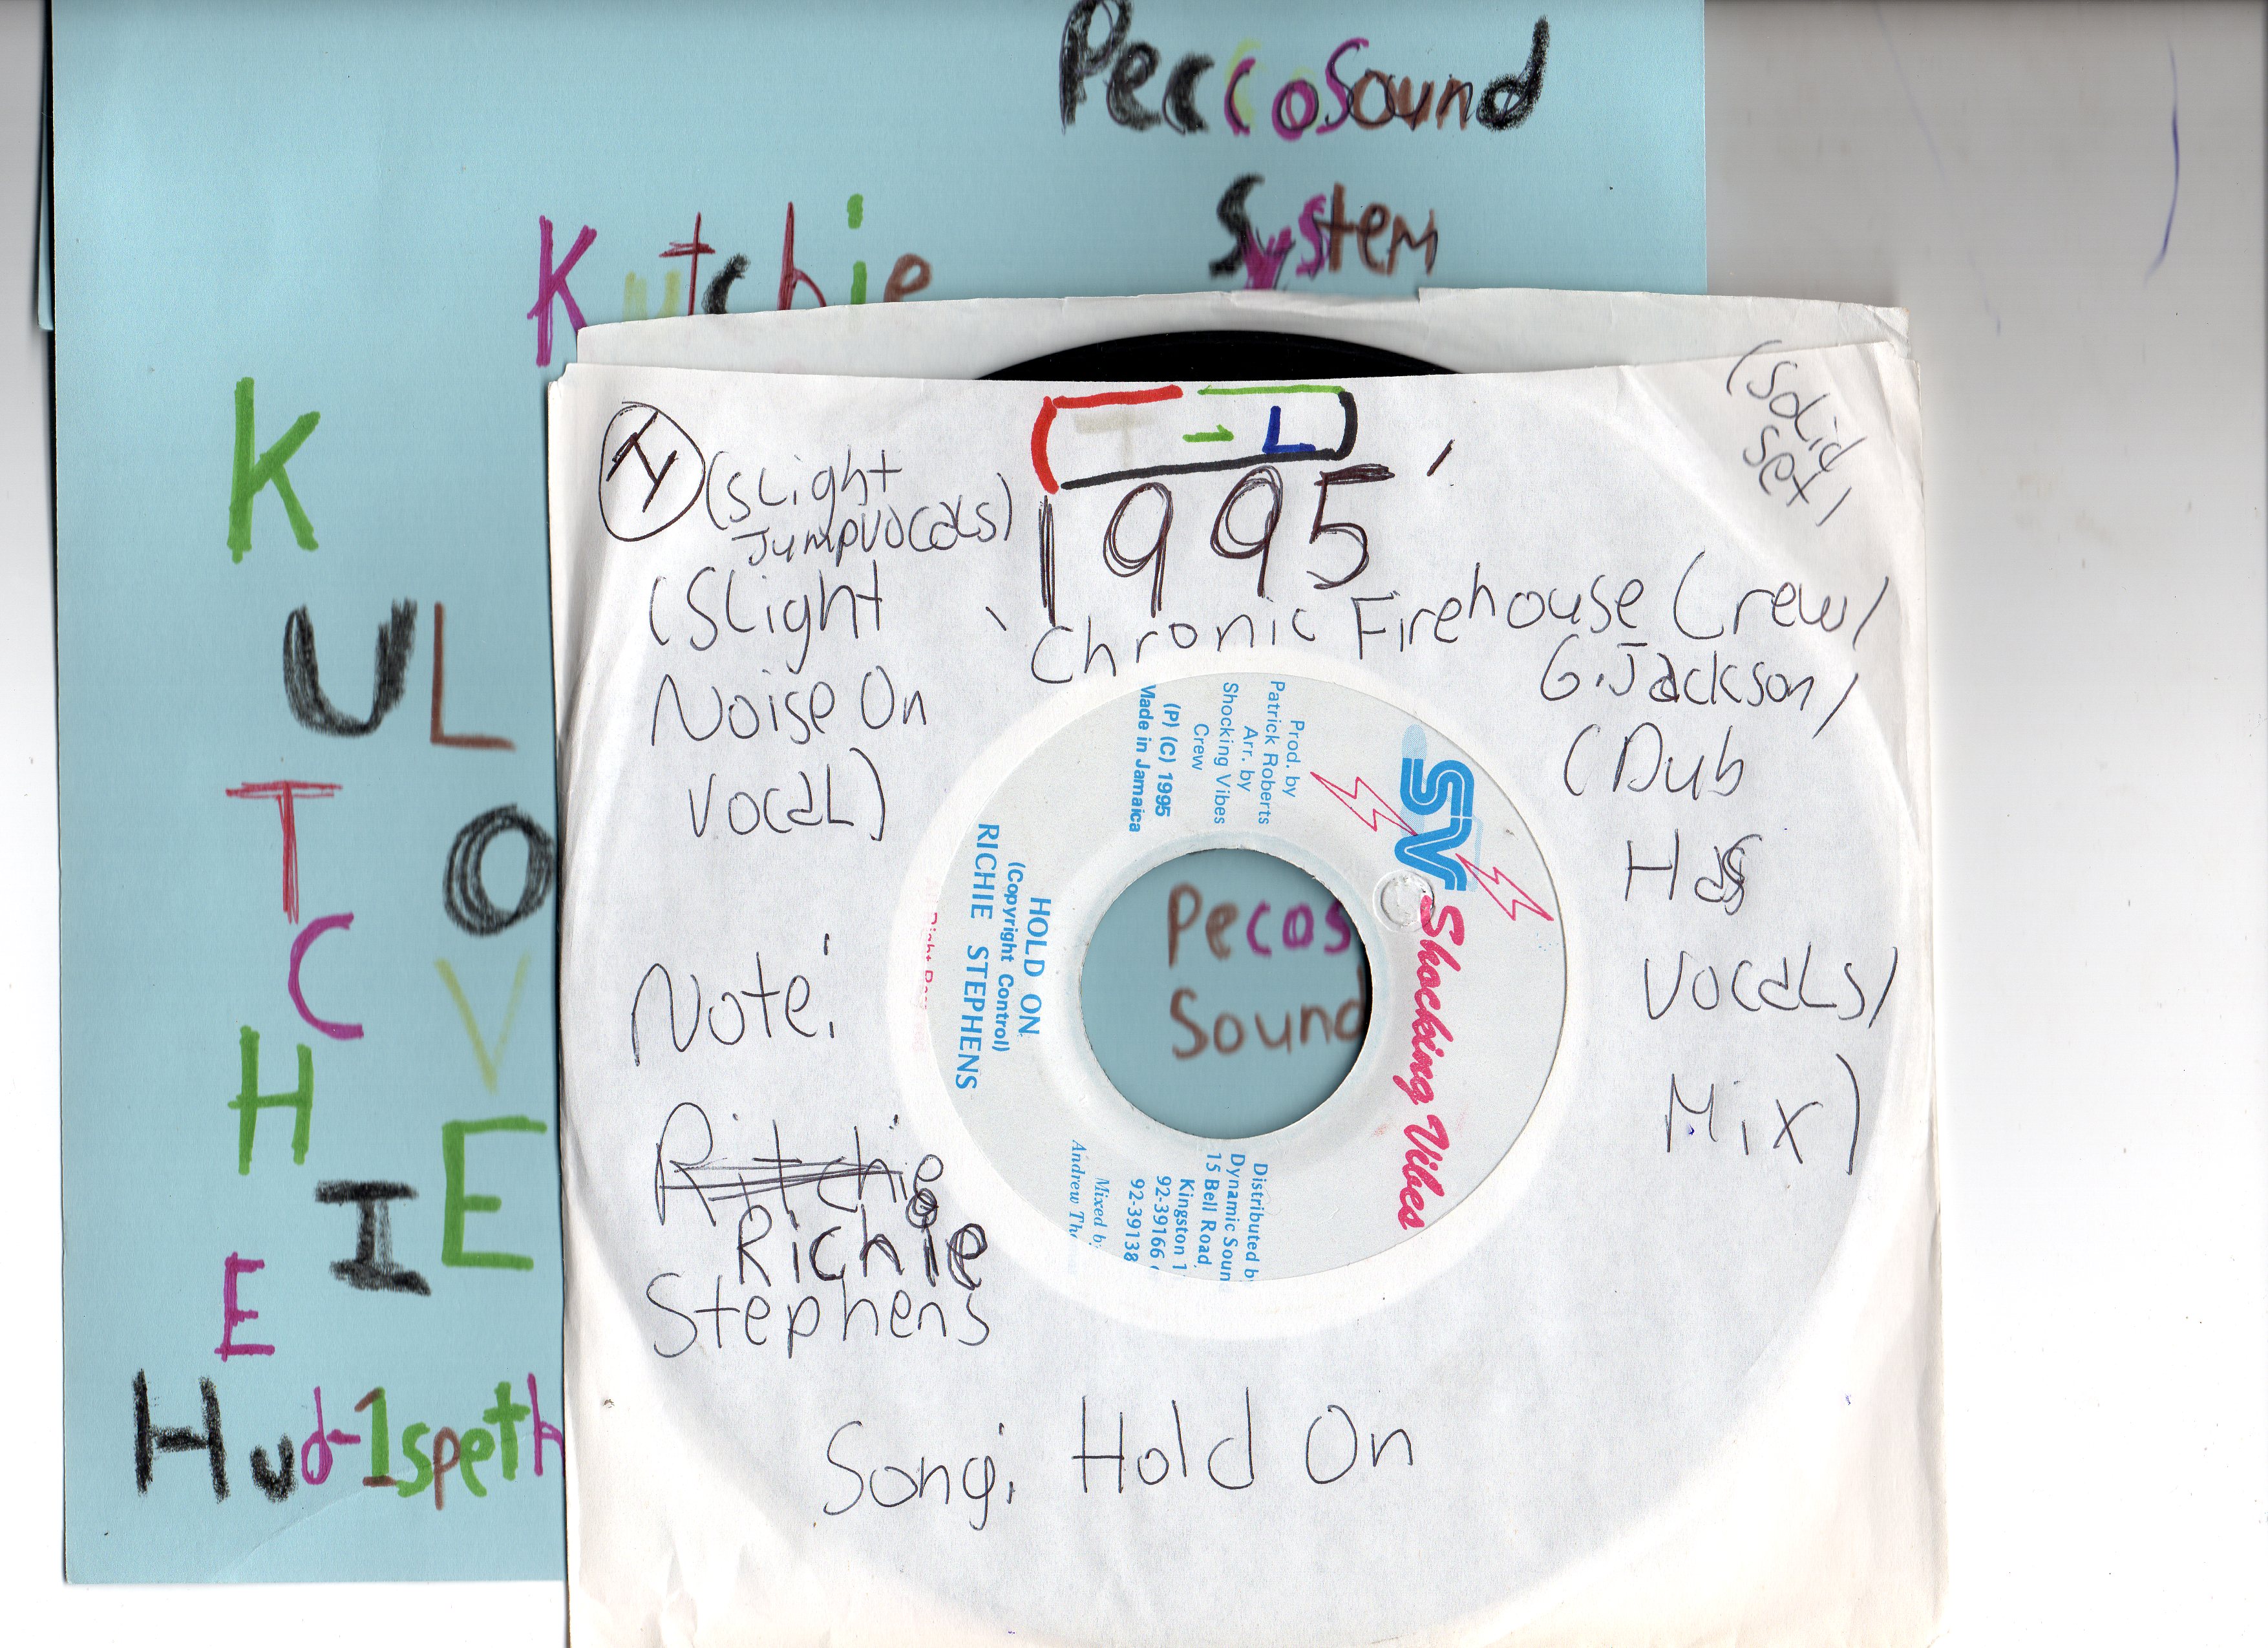 PeccoSound
System
Kutchie
K
U
T
C
H
I
E
L
O
V
E
Hud-1speth
T - L
1995
(Solid
Set)
(SLight
JumpVocaLs)
(SLight
Noise On
VocaL)
Chronic Firehouse Crew/
G. Jackson/
(Dub
Has
VocaLs/
Mix)
Note:
Ritchie
Richie
Stephens
Song: Hold On
SV
Shocking Vibes
Prod. by
Patrick Roberts
Arr. by
Shocking Vibes
Crew
(P) (C) 1995
Made in Jamaica
HOLD ON
(Copyright Control)
RICHIE STEPHENS
Distributed b
Dynamic Soun
15 Bell Road,
Kingston 1
92-39166
92-39138
Mixed b
Andrew Th
Pecos
Sound